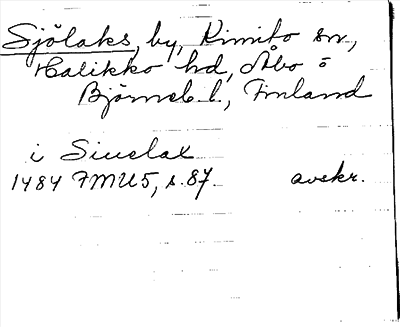 Sjölaks, by, Kimito sn,
Halikko hd, Åbo o
Björneb. l., Finland
i Siuelax
1484 FMU5, s. 87. avskr.